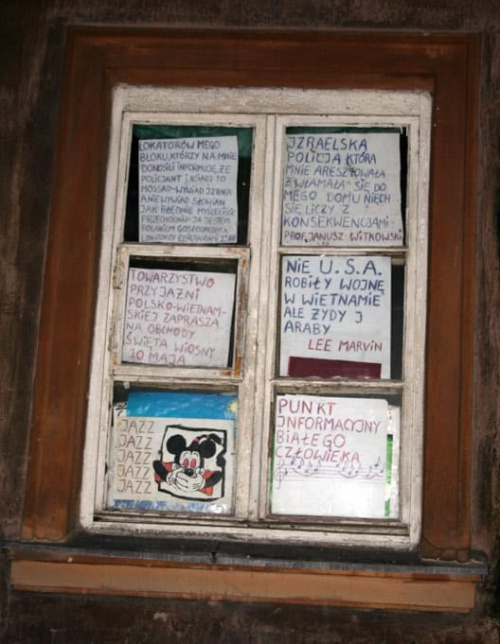 LOKATORÓW MEGO
BLOKU, KTÓRZY NA MNIE
DONOSILI INFORMUJĘ, ŻE
POLICJANT I KSIĄDZ TO
MOSSAD-WYWIAD IZRAELA
A NIE WYWIAD SŁOWIAN
JAK BŁĘDNIE MYŚLELIŚCIE
PRZECHODNIU JA JESTEM
POLAKIEM GOSPODARZEM
IZRAELSKA
POLICJA KTÓRA
MNIE ARESZTOWAŁA
I WŁAMAŁA SIĘ DO
MEGO DOMU NIECH
SIĘ LICZY Z
KONSEKWENCJAMI-
PROF. JANUSZ WITKOWSKI
TOWARZYSTWO
PRZYJAŹNI
POLSKO-WIETNAM-
SKIEJ ZAPRASZA
NA OBCHODY
ŚWIĘTA WIOSNY
10 MAJA
NIE U.S.A.
ROBIŁY WOJNĘ
W WIETNAMIE
ALE ŻYDY I
ARABY
LEE MARVIN
JAZZ
JAZZ
JAZZ
JAZZ
JAZZ
PUNKT
INFORMACYJNY
BIAŁEGO
CZŁOWIEKA